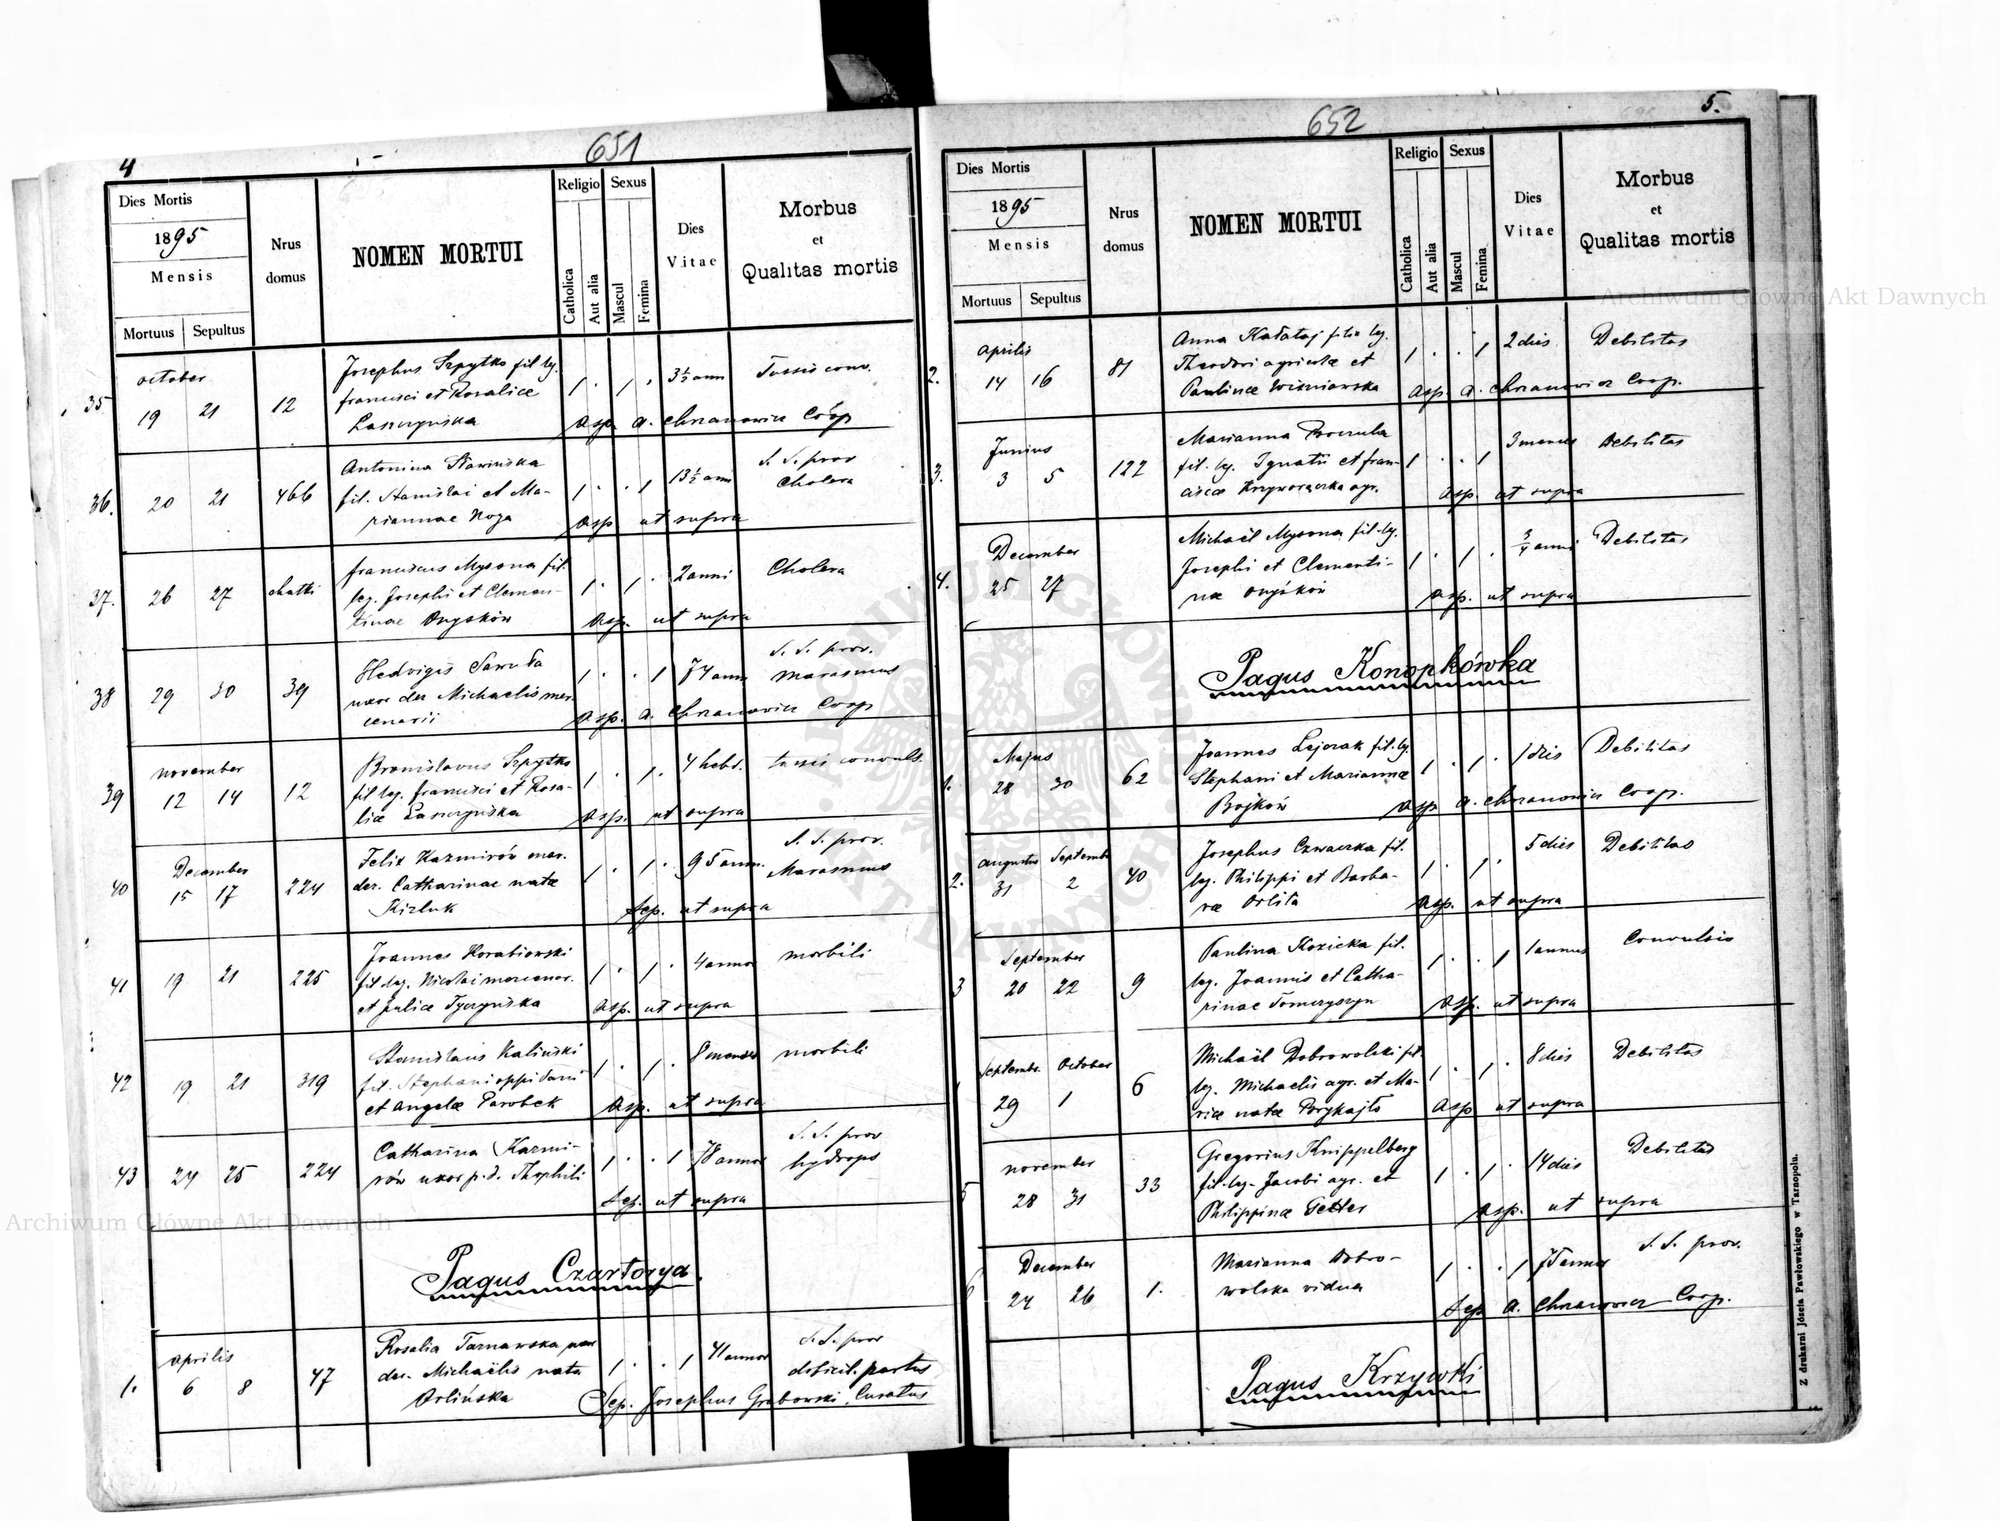 4
651
Dies Mortis
1895
Mensis
Mortuus Sepultus
Nrus domus
NOMEN MORTUI
Religio
Catholica
Aut alia
Sexus
Mascul
Femina
Dies Vitae
Morbus
et
Qualitas mortis
35
october
19 21 12
Josephus Szpytko fil. lg.
francisci et Rosaliae
1 . 1 . 3½ ann Tussis conv.
Asp. A. Chrzanowicz Coop.
36.
20 21 466
Antonina
fil. Stanislai et Ma-
riannae Noga
1 . . 1 13½ ann
S. S. prov
Cholera
Asp. ut supra
37.
26 27 chatki
franciscus Mysona fil.
leg. Josephi et Clemen-
tinae Onyśków
1 . 1 . 2 anni Cholera
Asp. ut supra
38
29 30 39
Hedvigis
uxor der Michaelis mer
cenarii
1 . . 1 74 ann
S. S. prov.
marasmus
Asp. A. Chrzanowicz Coop
39
november
12 14 12
Bronislavus Szpytko
fil. leg. francisci et Rosa-
liae
1 . 1 . 4 hebd. tussis convuls.
Asp. ut supra
40
December
15 17 224
Felix Kazmirów mar.
der. Catharinae nata
Kizluk
1 . 1 . 95 ann.
S. S. prov.
Marasmus
Sep. ut supra
41
19 21 225
Joannes Horatiowski
fil. leg. Nicolai mercenar.
et Juliae Tyczyńska
1 . 1 . 4 annor morbili
Asp. ut supra
42
19 21 319
Stanislaus Kaliński
fil. Stephani oppidani
et Angelae Parobek
1 . 1 . 8 menses morbili
Asp. ut supra
43
24 25 224
Catharina Kazmi-
rów uxor p. d. Theophili
1 . . 1 78 annor
S. S. prov
hydrops
Sep. ut supra
Pagus Czartorya.
1.
aprilis
6 8 47
Rosalia Tarnawska uxor
der. Michaëlis nata
Orlińska
1 . . 1 41 annor
S. S. prov
dificil. partus
Sep. Josephus Grabowski, Curatus
652
5.
Dies Mortis
1895
Mensis
Mortuus Sepultus
Nrus domus
NOMEN MORTUI
Religio
Catholica
Aut alia
Sexus
Mascul
Femina
Dies Vitae
Morbus
et
Qualitas mortis
2.
aprilis
14 16 81
Anna Kałataj filia lg.
Theodori agricolae et
Paulinae Wiśniowska
1 . . 1 2 dies Debilitas
Asp. A. Chrzanowicz Coop.
3.
Junius
3 5 122
Marianna
fil. leg. Ignatii et fran-
ciscae Krzyworączka agr.
1 . . 1 3 menses Debilitas
Asp. ut supra
4.
December
25 27
Michaël Mysona fil. lg.
Josephi et Clementi-
nae Onyśków
1 . 1 . ¾ anni Debilitas
Asp. ut supra
Pagus Konopkówka
1.
Majus
28 30 62
Joannes Lejczak fil. lg.
Stephani et Marianna
Bojków
1 . 1 . 1 dies Debilitas
Asp A. Chrzanowicz Coop.
2.
augustus Septembr
31 2 40
Josephus Czwaczka fil.
leg. Philippi et Barba-
rae Orlita
1 . 1 . 5 dies Debilitas
Asp. ut supra
3
September
20 22 9
Paulina Kozicka fil.
leg. Joannis et Catha-
rinae Tomczyszyn
1 . . 1 1 annus Convulsio
Asp. ut supra
Septembr. October
29 1 6
Michaël Dobrowolski fil.
leg. Michaelis agr. et Ma-
riae natae Porykajło
1 . 1 . 8 dies Debilitas
Asp ut supra
5
november
28 31 33
Gregorius Knippelberg
fil. leg. Jacobi agr. et
Philippinae Tetter
1 . 1 . 14 dies Debilitas
Asp. ut supra
6
December
24 26 1.
Marianna Dobro-
wolska vidua
1 . . 1 75 annor S. S. prov.
Sep A. Chrzanowicz Coop.
Pagus Krzywki
Z drukarni Józefa Pawłowskiego w Tarnopolu.
Archiwum Główne Akt Dawnych
Archiwum Główne Akt Dawnych
ARCHIWUM GŁÓWNE AKT DAWNYCH